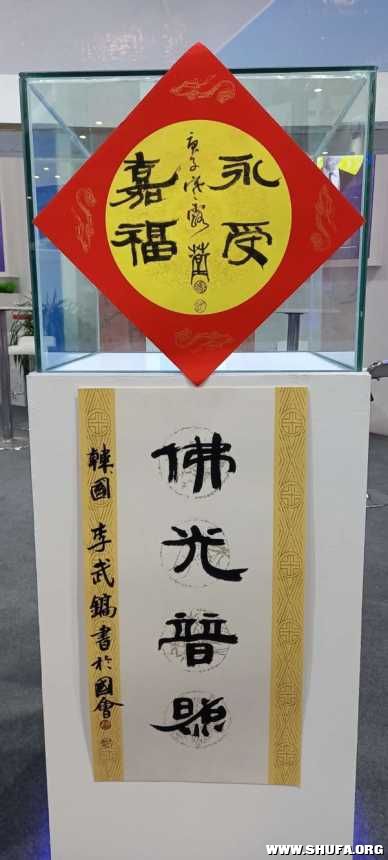 永受
嘉福
庚子寒露
佛光普照
韓國 李武鎬書於國會
WWW.SHUFA.ORG